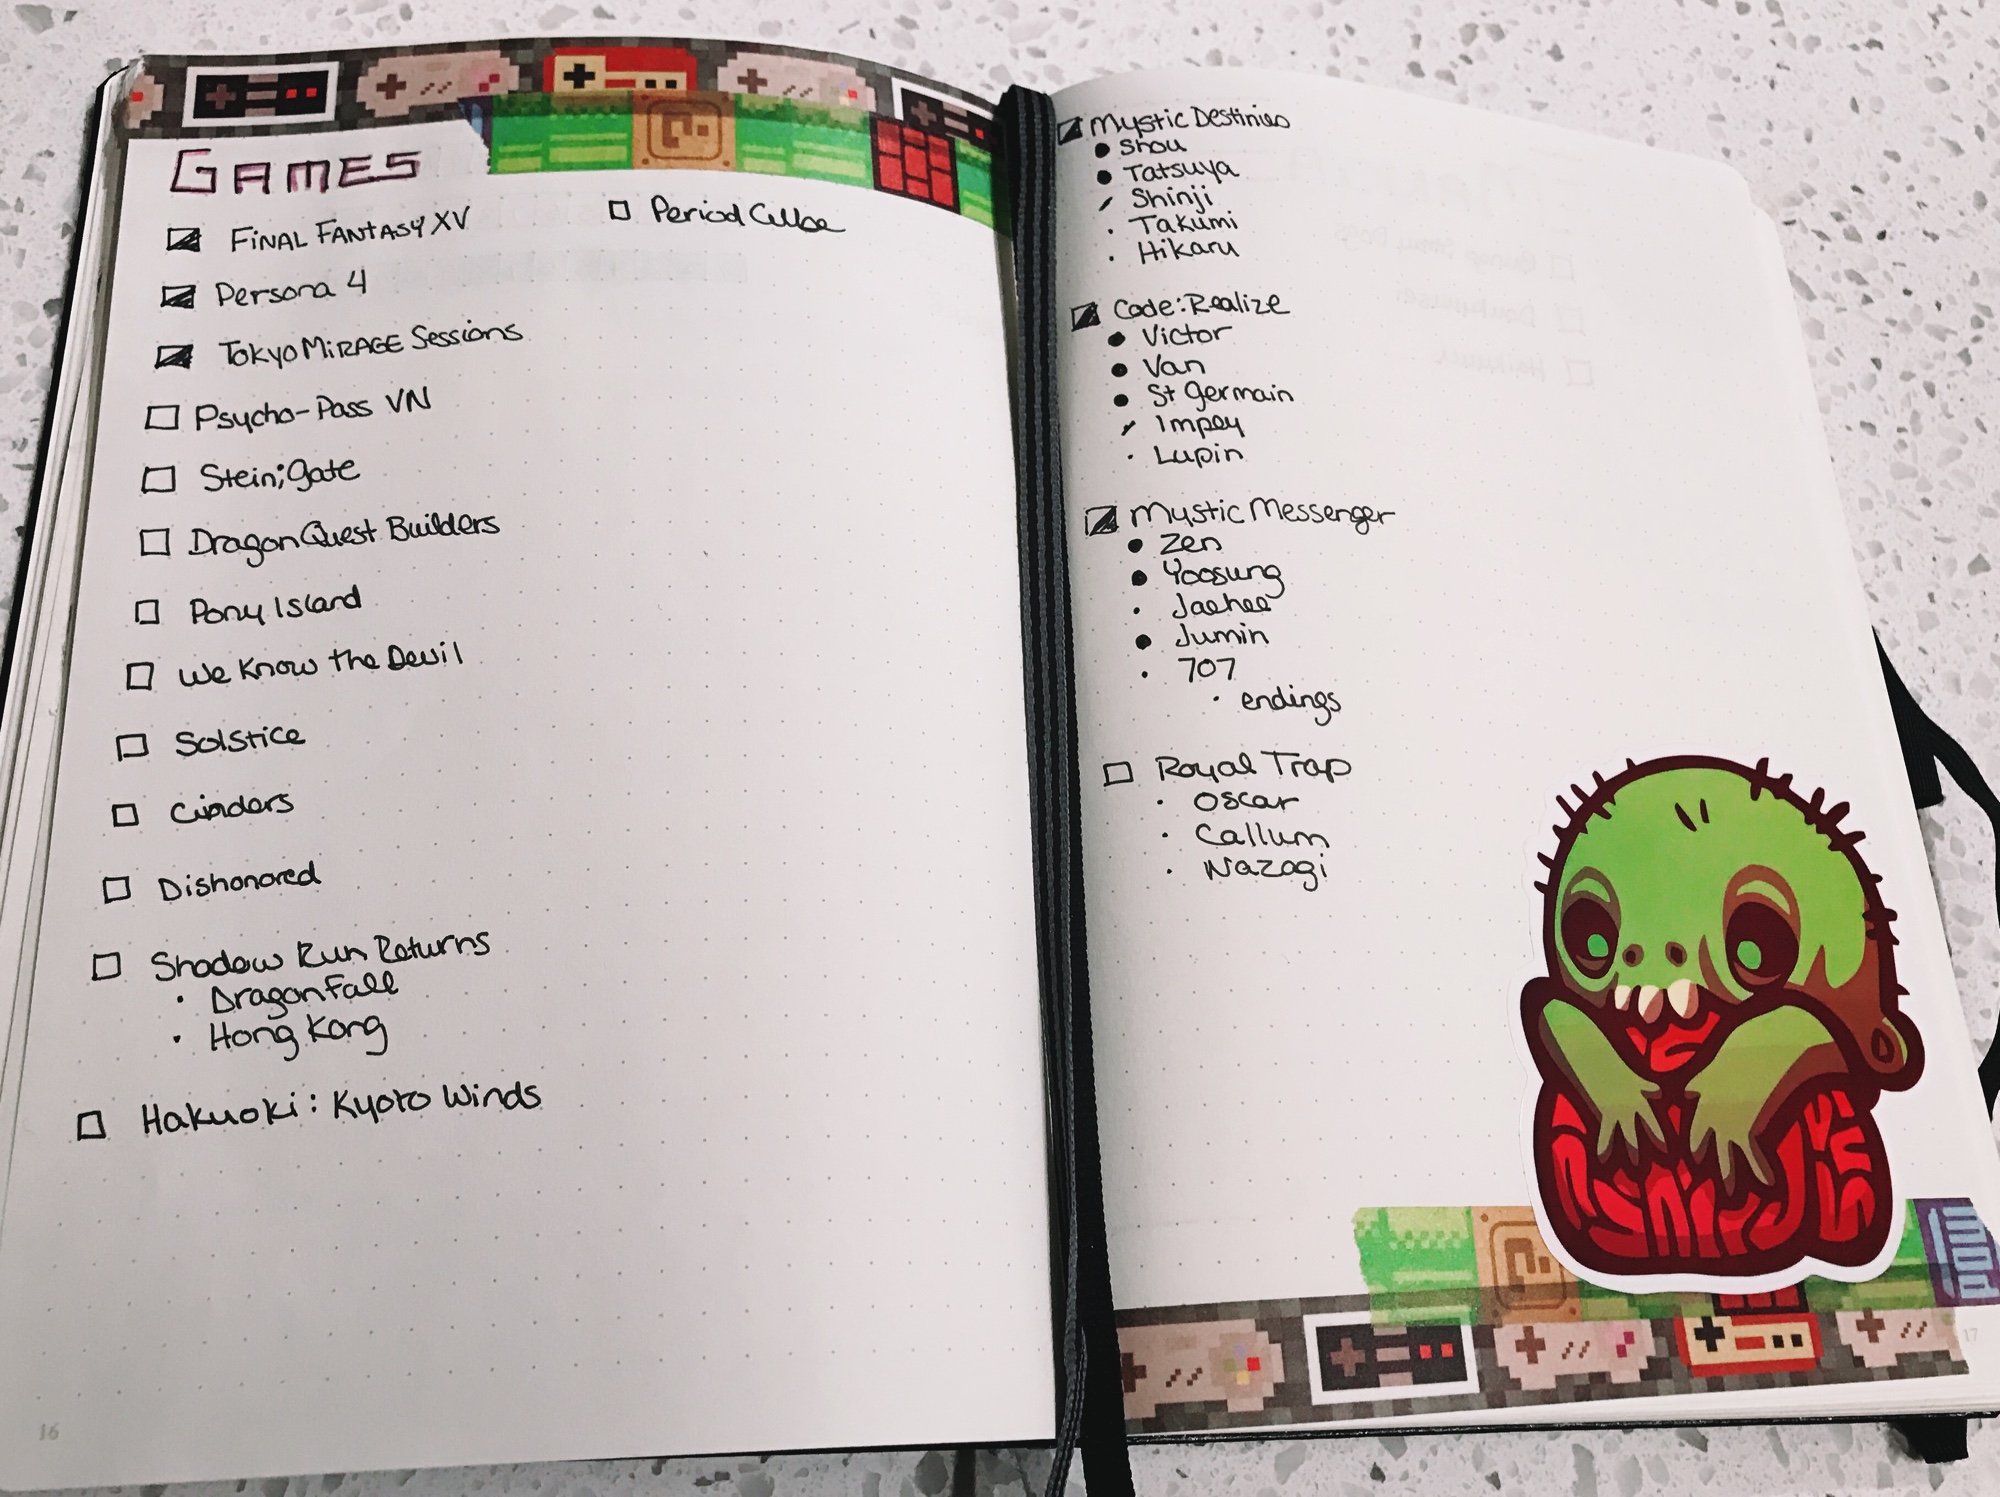 GAMES
FINAL FANTASY XV
Persona 4
TOKYO MIRAGE Sessions
Psycho-Pass VN
Stein;gate
Dragon Quest Builders
Pony Island
We Know the Devil
Solstice
Cinders
Dishonored
Shadow Run Returns
• Dragonfall
• Hong Kong
Hakuoki: Kyoto Winds
Period Cube
16
Mystic Destinies
• Shou
• Tatsuya
Shinji
• Takumi
• Hikaru
Code:Realize
• Victor
• Van
• St Germain
Impey
• Lupin
Mystic Messenger
• Zen
• Yoosung
• Jaehee
• Jumin
• 707
• endings
Royal Trap
• Oscar
• Callum
• Nazagi
17